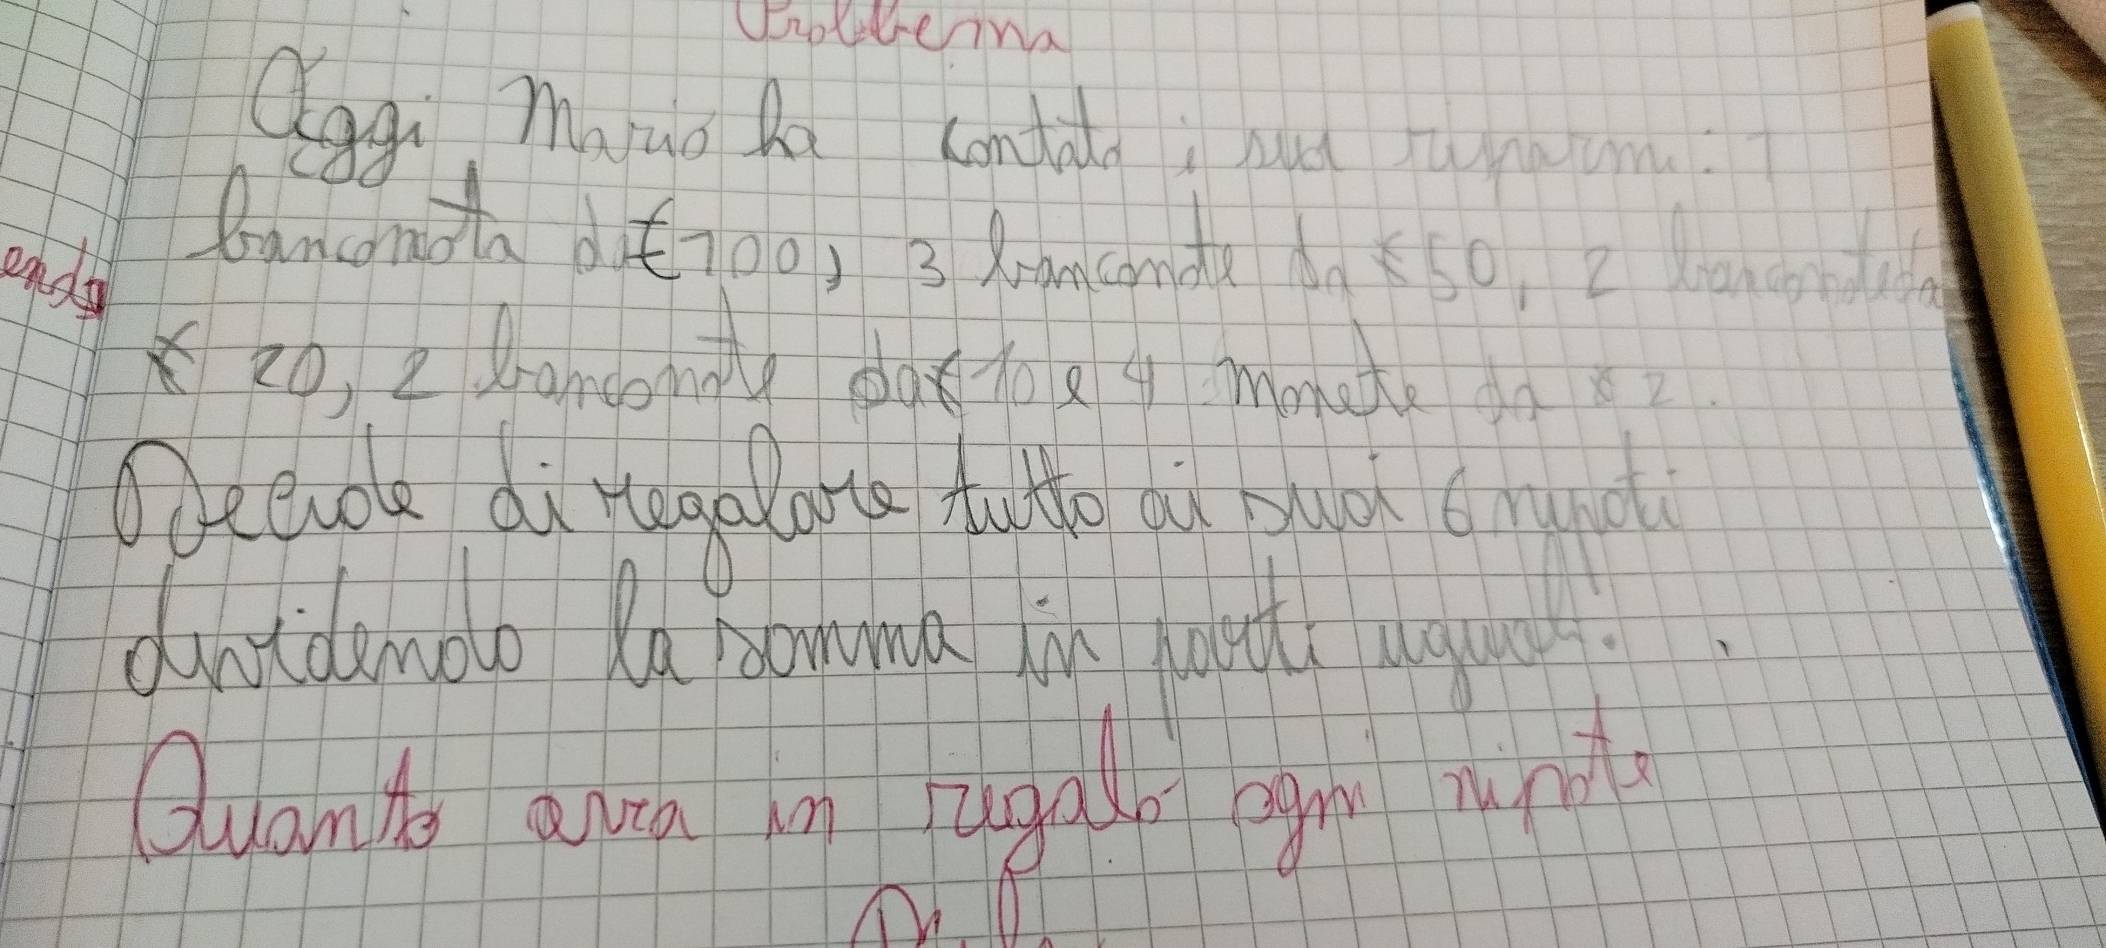 Problema
Oggi Mario ha contato i suoi risparmi: 1
banconota di €100, 3 banconote da €50, 2 banconote da
endo
€ 20, 2 banconote da €10 e 4 monete da €2.
Decide di regalare tutto ai suoi 6 nipoti
dividendo la somma in parti uguali.
Quanto avra in regalo ogni nipote